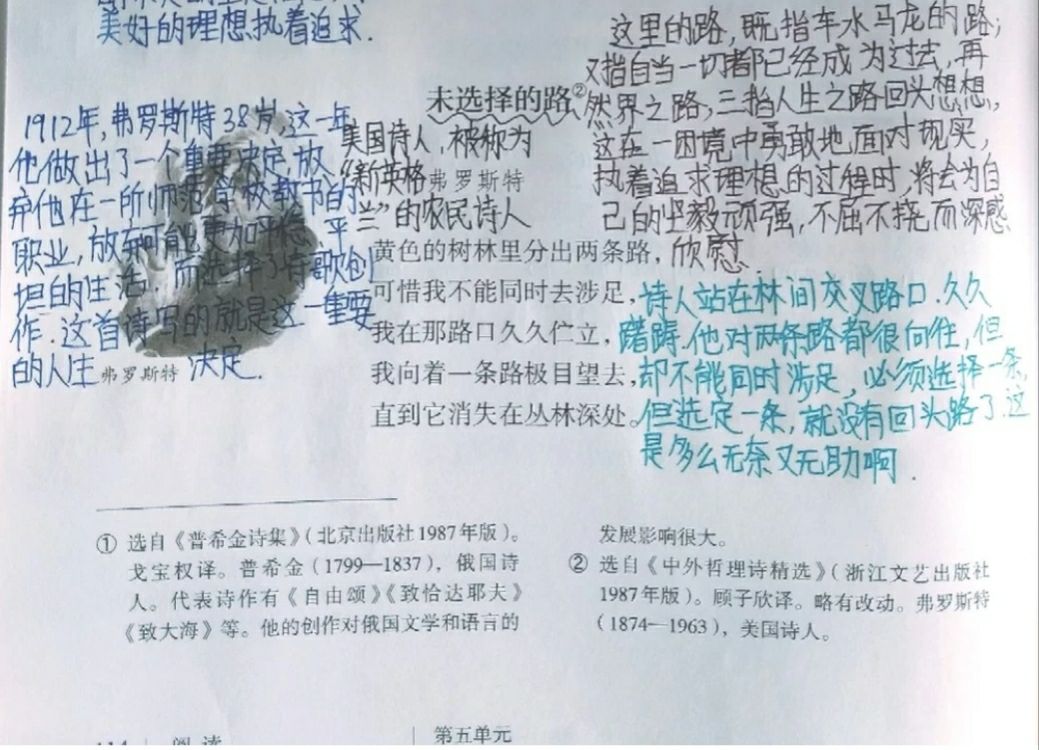 美好的理想执着追求.
这里的路,既指车水马龙的路;
又指自当一切都已经成为过去,再
然界之路,三指人生之路回头想想,
这在一困境中勇敢地面对现实,
执着追求理想的过程时,将会为自
己的坚毅顽强,不屈不挠而深感
欣慰.
未选择的路②
美国诗人,被称为
“新英格
兰”的农民诗人
弗罗斯特
1912年,弗罗斯特38岁,这一年
他做出了一个重要决定,放
弃他在一所师范学校教书的
职业,放弃可能更加平稳、平
坦的生活,而选择了诗歌创
作.这首诗写的就是这一重要
的人生 决定.
弗罗斯特
黄色的树林里分出两条路,
可惜我不能同时去涉足,
我在那路口久久伫立,
我向着一条路极目望去,
直到它消失在丛林深处。
诗人站在林间交叉路口.久久
踌躇.他对两条路都很向往,但
却不能同时涉足,必须选择一条,
但选定一条,就没有回头路了.这
是多么无奈又无助啊.
① 选自《普希金诗集》(北京出版社1987年版)。
戈宝权译。普希金(1799—1837),俄国诗
人。代表诗作有《自由颂》《致恰达耶夫》
《致大海》等。他的创作对俄国文学和语言的
发展影响很大。
② 选自《中外哲理诗精选》(浙江文艺出版社
1987年版)。顾子欣译。略有改动。弗罗斯特
(1874—1963),美国诗人。
阅读
第五单元